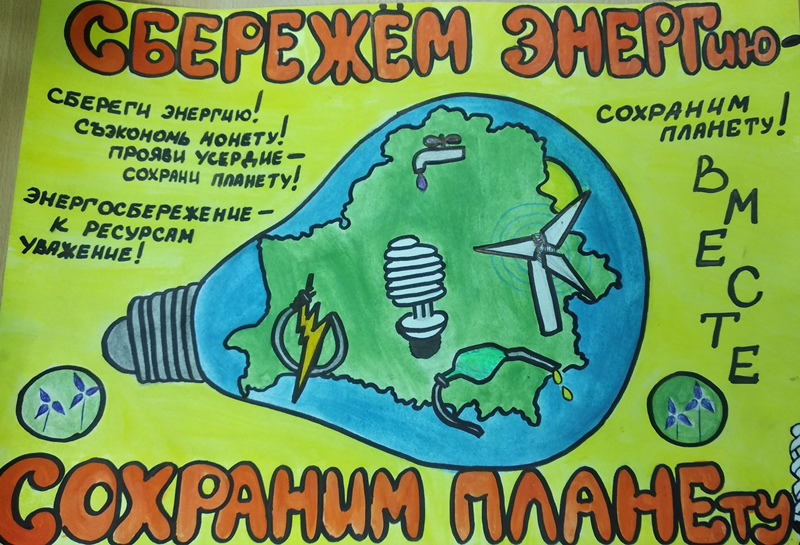 СБЕРЕЖЁМ ЭНЕРГию-
СБЕРЕГИ ЭНЕРГИЮ!
СЪЭКОНОМЬ МОНЕТУ!
ПРОЯВИ УСЕРДИЕ–
СОХРАНИ ПЛАНЕТУ!
ЭНЕРГОСБЕРЕЖЕНИЕ–
К РЕСУРСАМ
УВАЖЕНИЕ!
СОХРАНИМ
ПЛАНЕТУ!
ВМЕСТЕ
СОХРАНИМ ПЛАНЕту